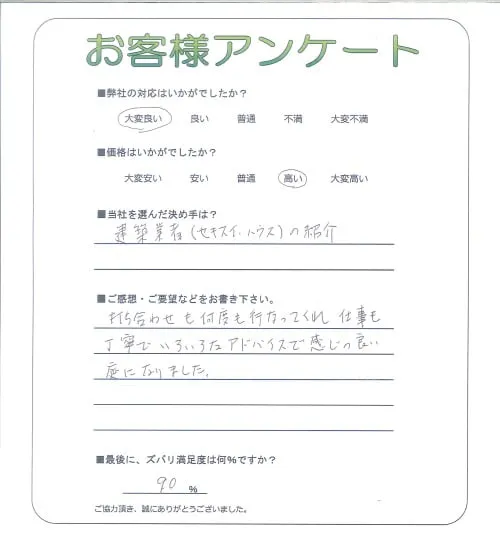 お客様アンケート
■弊社の対応はいかがでしたか?
大変良い 良い 普通 不満 大変不満
■価格はいかがでしたか?
大変安い 安い 普通 高い 大変高い
■当社を選んだ決め手は?
建築業者(セキスイハウス)の紹介
■ご感想・ご要望などをお書き下さい。
打ち合わせも何度も行なってくれ 仕事も
丁寧で いろいろなアドバイスで感じの良い
庭になりました。
■最後に、ズバリ満足度は何%ですか?
90 %
ご協力頂き、誠にありがとうございました。